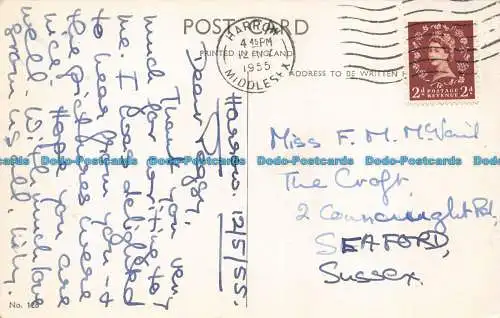 POSTCARD
PRINTED IN ENGLAND
ADDRESS TO BE WRITTEN
HARROW
4 45 PM
12
1955
MIDDLESEX
POSTAGE
REVENUE
2d 2d
Harrow. 12/5/55.
Dear Peggy,
Thank you very
much for writing to
me. I was delighted
to hear from you &
the pictures were
nice. Hope you are
well. With much love
from us all,
Miss F. M.
The Croft,
2 Connaught Rd,
SEAFORD,
Sussex.
No. 118
Dodo-Postcards Dodo-Postcards Dodo-Postcards Dodo-Postcards Dodo-Postcards